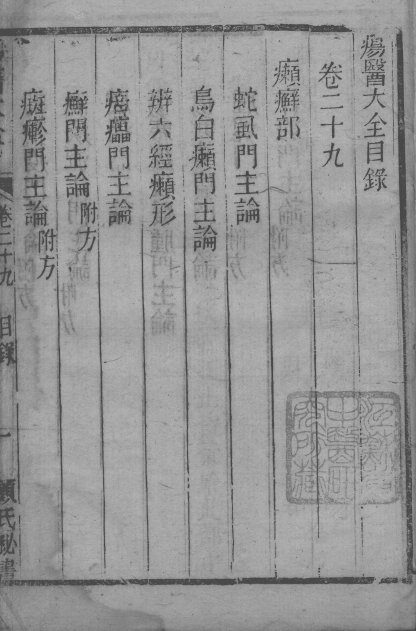 瘍醫大全目錄
卷二十九
癩癬部
蛇虱門主論
烏白癩門主論
辨六經癩形
門主論
癬門主論附方
癍疹門主論附方
卷二十九 目錄 一 顧氏秘書
中醫研
究所藏